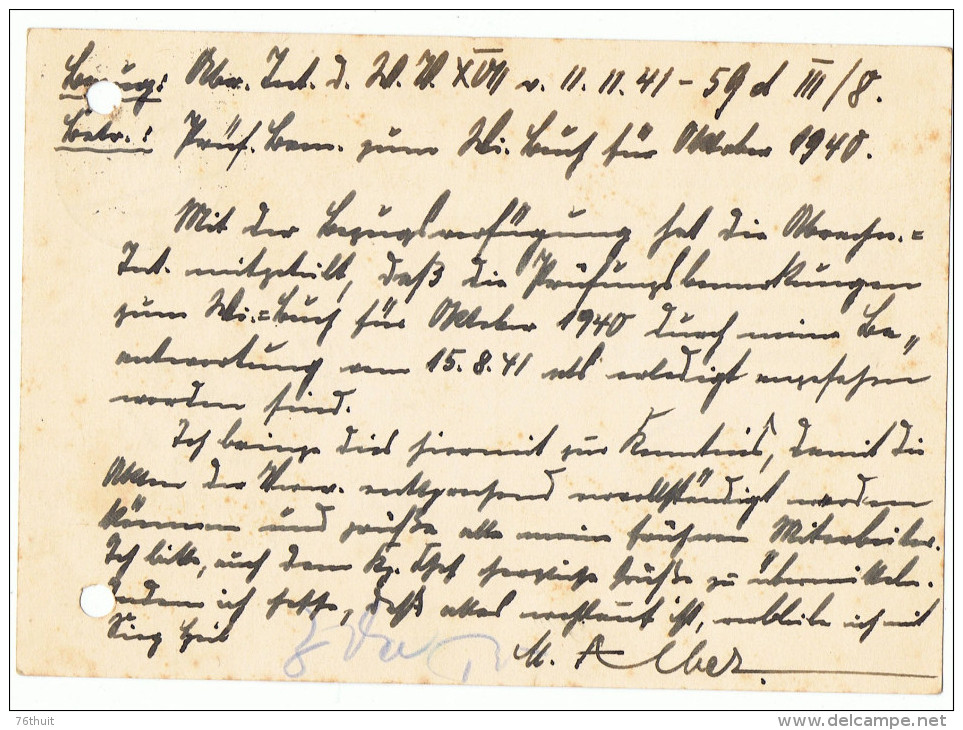 Bezug: Abr. Int. d. W. V. XVII v. 11. 11. 41 – 59 d III/8.
Betr.: Prüf. Bem. zum Wi. Buch für Oktober 1940.
Mit der Bezugsverfügung hat die Abrechn.=
Int. mitgeteilt, daß die Prüfungsbemerkungen
zum Wi.=Buch für Oktober 1940 durch meine Be„
antwortung vom 15.8.41 als erledigt angesehen
worden sind.
Ich bringe dies hiermit zur Kenntnis, damit die
Akten der Verw. entsprechend vervollständigt werden
können und grüße alle meine früheren Mitarbeiter.
Ich bitte, auch dem Chef herzliche Grüße zu übermitteln.
Indem ich hoffe, daß alles wohlauf ist, verbleibe ich mit
Sieg Heil
M. Alber.
76thuit
www.delcampe.net